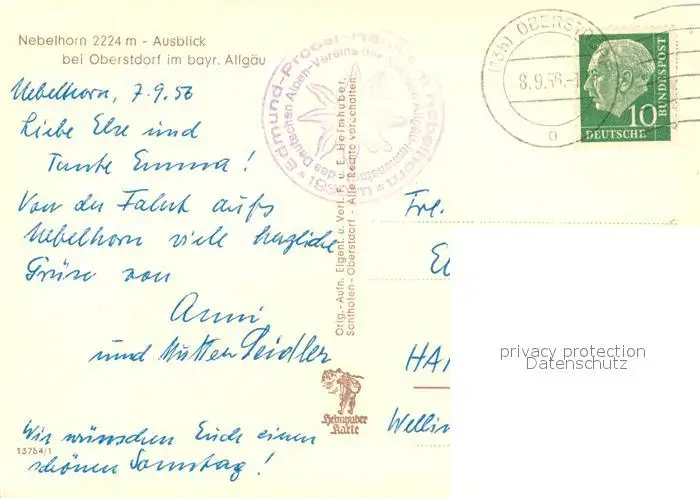 Nebelhorn 2224 m - Ausblick
bei Oberstdorf im bayr. Allgäu
Nebelhorn, 7.9.56
Liebe Else und
Tante Emma!
Von der Fahrt aufs
Nebelhorn viele herzliche
Grüße von
Anni
und Mutter Seidler
Wir wünschen Euch einen
schönen Sonntag!
13754/1
Edmund-Probst-Haus a. Nebelhorn
des Deutschen Alpen-Vereins
Orig.-Aufn. Eigent. u. Verl. F. u. E. Heimhuber,
Sonthofen-Oberstdorf - Alle Rechte vorbehalten
Heimhuber
Karte
(13b) OBERSTDO
8.9.56.-1
a
10
DEUTSCHE
BUNDESPOST
Frl.
El
HA
Wellin
privacy protection
Datenschutz